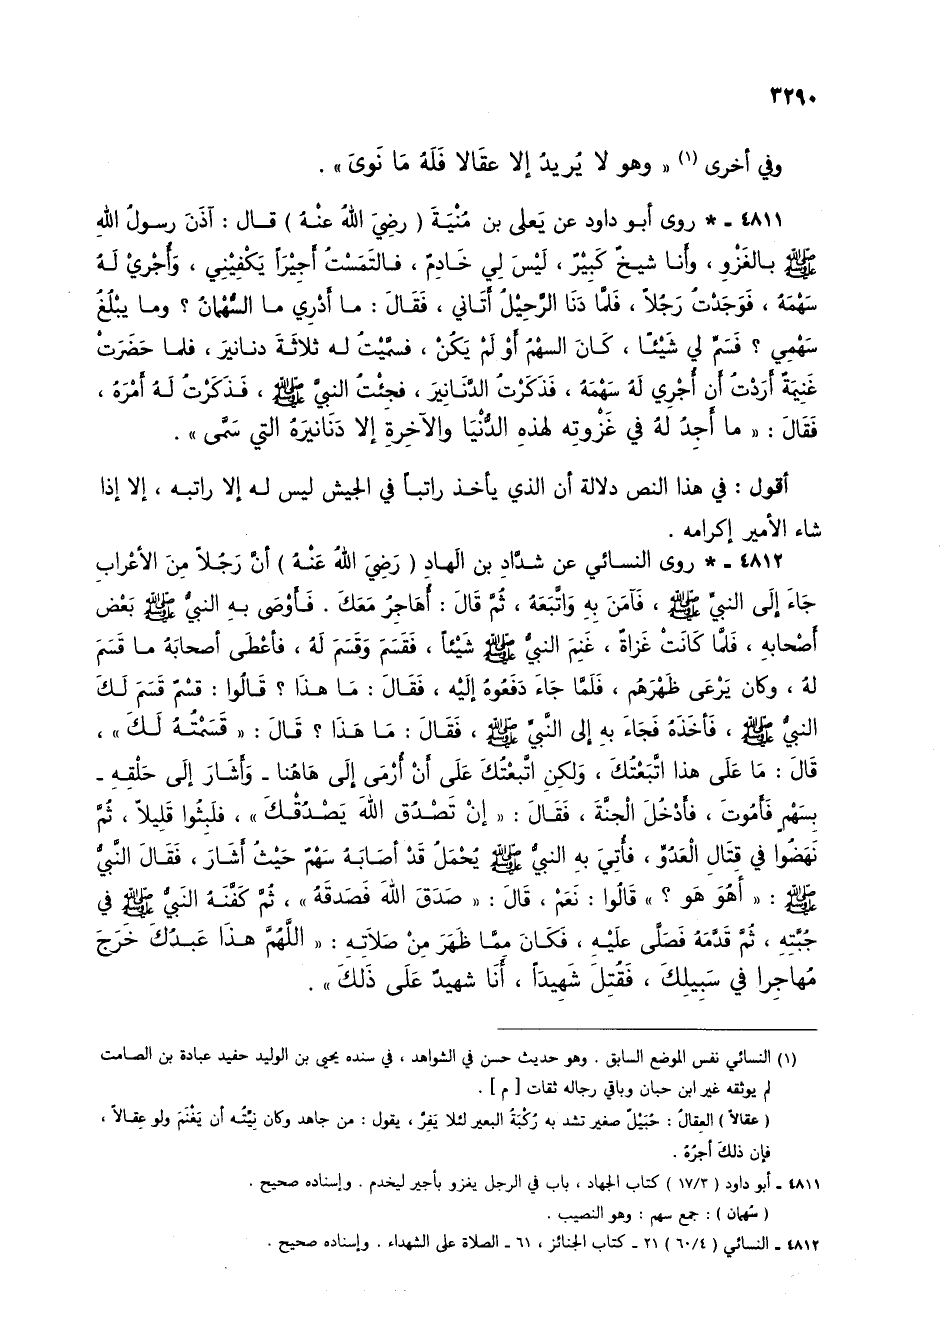 ٣٢٩٠
وفي أخرى (١) « وهو لا يُريدُ إلا عقَالا فَلَهُ مَا نَوىَ » .
٤٨١١ ـ * روى أبو داود عن يَعلى بن مُنْيَةَ ( رضِيَ اللهُ عنْهُ ) قال : آذَنَ رسولُ الله
ﷺ بالغَزْوِ ، وأنا شيخٌ كَبِيْرٌ ، لَيْسَ لِي خَادِمٌ ، فالتَمَسْتُ أَجِيْرَاً يَكْفِيْنِي ، وَأُجْرِيْ لَهُ
سَهْمَهُ ، فَوَجَدْتُ رَجُلاً ، فَلَمَّا دَنَا الرَّحِيْلُ أَتَاني ، فَقَالَ : ما أَدْرِي ما السُّهْمَانُ ؟ وما يبْلُغُ
سَهْمِي ؟ فَسَمِّ لي شَيْئَا ، كَانَ السهْمُ أَوْ لَمْ يَكُنْ ، فسمَّيْتُ له ثلاثَةَ دنانيرَ ، فلما حَضَرَتْ
غَنِيَمةٌ أَرَدْتُ أَن أُجْرِي لَهُ سَهْمَهُ ، فَذَكَرْتُ الدَّنَانِيرَ ، فجئْتُ النبيَّ ﷺ ، فَذكَرْتُ لَهُ أَمْرَهُ ،
فَقَالَ : « ما أَجِدُ لهُ في غَزْوتِه لهذِه الدُّنْيَا والآخِرةِ إلا دَنَانيرَهُ التي سَمَّى » .
أقول : في هذا النص دلالة أن الذي يأخذ راتباً في الجيش ليس له إلا راتبه ، إلا إذا
شاء الأمير إكرامه .
٤٨١٢ ـ * روى النسائي عن شدَّادِ بن الهادِ ( رَضِيَ اللهُ عَنْهُ ) أنَّ رَجُلاً مِنَ الأعْرابِ
جَاءَ إلَى النبيِّ ﷺ ، فَآمَنَ بِهِ وَاتَّبَعَهُ ، ثُمَّ قَالَ : أُهَاجِرُ مَعَكَ . فَأَوْصَى بِهِ النبيُّ ﷺ بَعْضَ
أصْحابِهِ ، فَلَمَّا كَانَتْ غَزَاةٌ ، غَنِمَ النبيُّ ﷺ شَيْئاً ، فقَسَمَ وَقَسَمَ لَهُ ، فأعْطَى أصحابَهُ مَا قَسَمَ
لهُ ، وكان يَرْعَى ظَهْرَهُم ، فَلَمَّا جَاءَ دَفَعُوهُ إلَيْه ، فَقَالَ : مَا هذَا ؟ قَالُوا : قسْمٌ قَسَمَ لَكَ
النبيُّ ﷺ ، فَأخَذَهُ فَجَاءَ بِهِ إلى النَّبيِّ ﷺ ، فَقَالَ : مَا هَذَا ؟ قالَ : « قَسَمْتُهُ لَكَ » ،
قَالَ : مَا عَلَى هذا اتَّبَعْتُكَ ، ولَكِنِ اتَّبعْتُكَ عَلَى أنْ أُرْمَى إلَى هَاهُنا ـ وَأَشَارَ إلَى حَلْقِهِ ـ
بِسَهْمٍ فَأَمُوتَ ، فَأَدْخُلَ الْجنَّةَ ، فَقَالَ : « إنْ تَصْدُق اللهَ يَصْدُقْكَ » ، فَلَبِثُوا قَلِيلاً ، ثُمَّ
نَهَضُوا في قِتَالِ الْعَدُوِّ ، فأُتِيَ بِهِ النبيُّ ﷺ يُحْمَلُ قَدْ أصَابَهُ سَهْمٌ حَيْثُ أَشَارَ ، فَقَالَ النَّبيُّ
ﷺ : « أَهُوَ هُوَ ؟ » قَالُوا : نَعَمْ ، قَالَ : « صَدَقَ اللهَ فَصَدقَهُ » ، ثُمَّ كَفَّنَهُ النبيُّ ﷺ في
جُبَّتِهِ ، ثُمَّ قَدَّمَهُ فَصَلَّى عليْهِ ، فَكَانَ مِمَّا ظَهَرَ مِنْ صَلاَتِهِ : « اللَّهُمَّ هذَا عَبدُكَ خَرَجَ
مُهاجِرا في سَبِيلِكَ ، فَقُتِلَ شَهِيدَاً ، أَنَا شهيدٌ عَلَى ذَلكَ » .
(١) النسائي نفس الموضع السابق . وهو حديث حسن في الشواهد ، في سنده يحيى بن الوليد حفيد عبادة بن الصامت
لم يوثقه غير ابن حبان وباقي رجاله ثقات [ م ] .
( عقالاً ) العِقالُ : حُبَيْلٌ صغير تشد به رُكْبَةُ البعير لئلا يَفِرَّ ، يقول : من جاهد وكان نِيَّتُه أن يَغْنَمَ ولو عِقالاً ،
فإن ذلك أجرُهُ .
٤٨١١ ـ أبو داود ( ١٧/٣ ) كتاب الجهاد ، باب في الرجل يغزو بأجير ليخدم . وإسناده صحيح .
( سُهمان ) : جمع سهم : وهو النصيب .
٤٨١٢ ـ النسائي ( ٦٠/٤ ) ٢١ ـ كتاب الجنائز ، ٦١ ـ الصلاة على الشهداء . وإسناده صحيح .